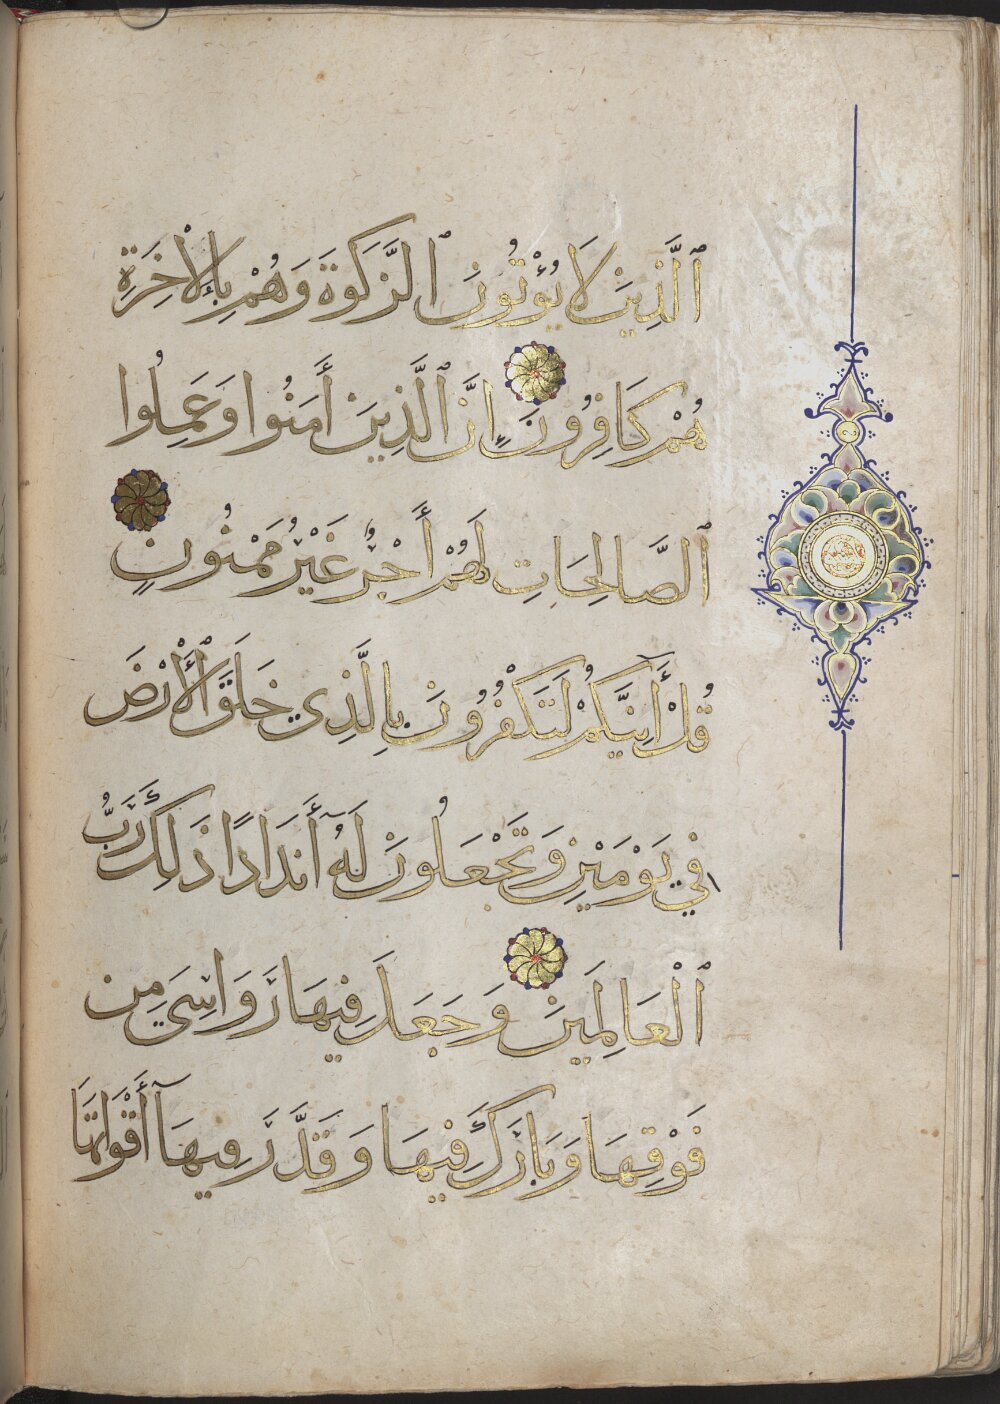 ٱلَّذِينَ لَا يُؤْتُونَ ٱلزَّكَوةَ وَهُمْ بِالْأَخِرَةِ
هُمْ كَافِرُونَ إِنَّ ٱلَّذِينَ أَمَنُوا وَعَمِلُوا
ٱلصَّالِحَاتِ لَهُمْ أَجْرٌ غَيْرُ مَمْنُونٍ
قُلْ أَئِنَّكُمْ لَتَكْفُرُونَ بِالَّذِي خَلَقَ ٱلْأَرْضَ
فِي يَوْمَيْنِ وَتَجْعَلُونَ لَهُ أَنْدَادًا ذَلِكَ رَبُّ
ٱلْعَالَمِينَ وَجَعَلَ فِيهَا رَوَاسِيَ مِن
فَوْقِهَا وَبَارَكَ فِيهَا وَقَدَّرَ فِيهَآ أَقْوَاتَهَا